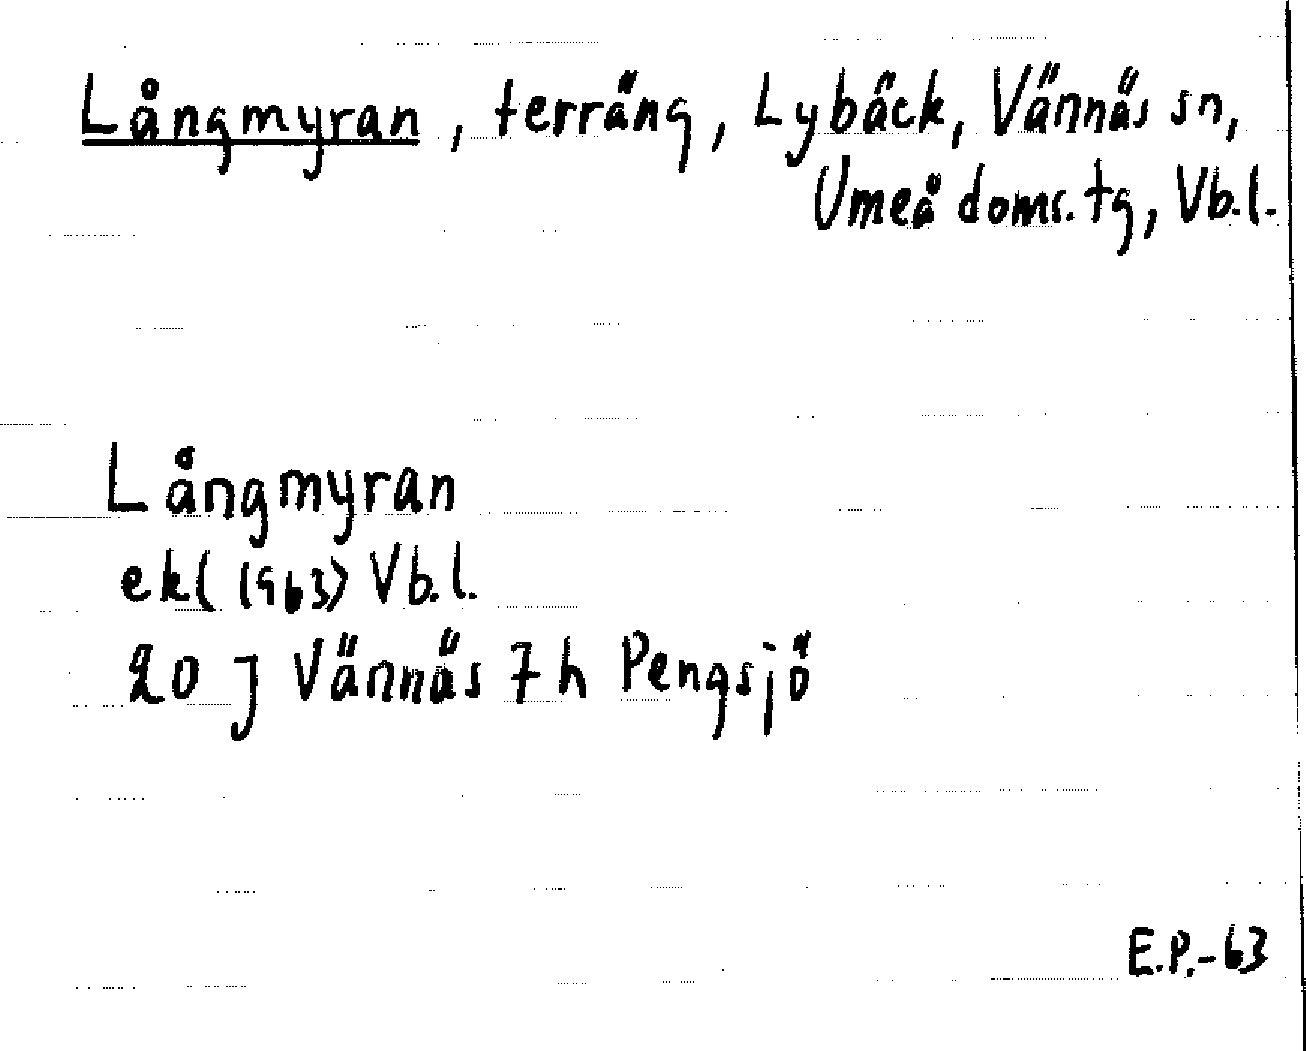 Långmyran, terräng, Lybäck, Vännäs sn,
Umeå doms. tg, Vb.l.
Långmyran
ek(1963) Vb.l.
20 J Vännäs 7h Pengsjö
E.P.-63